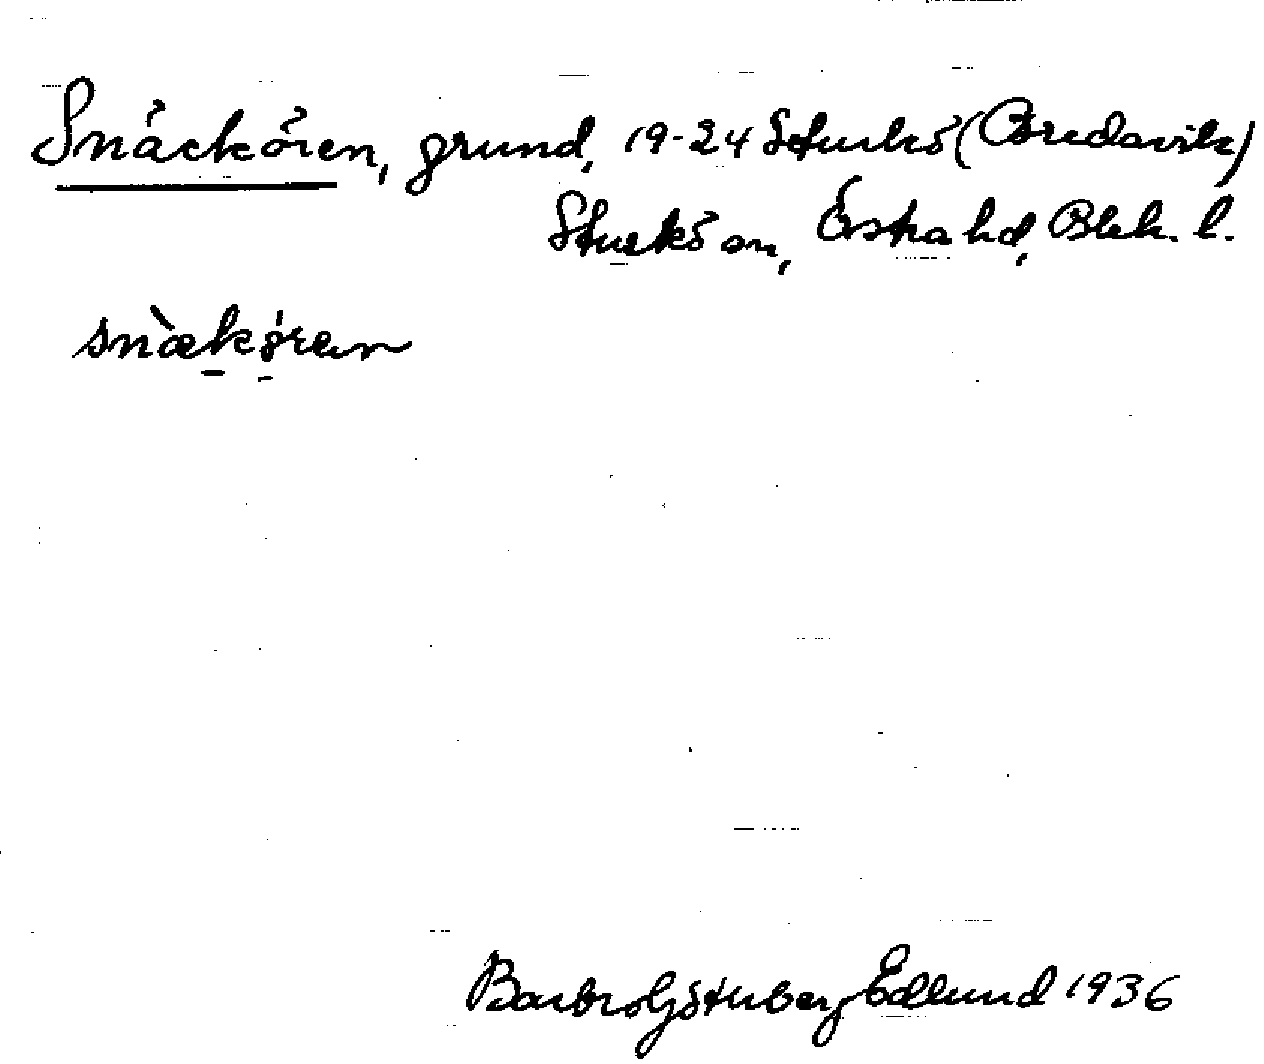 Snäckören, grund, 19-24 Sturkö (Bredavik)
Sturkö sn, Östra hd, Blek. l.
snækøren
Barbro Edlund 1936